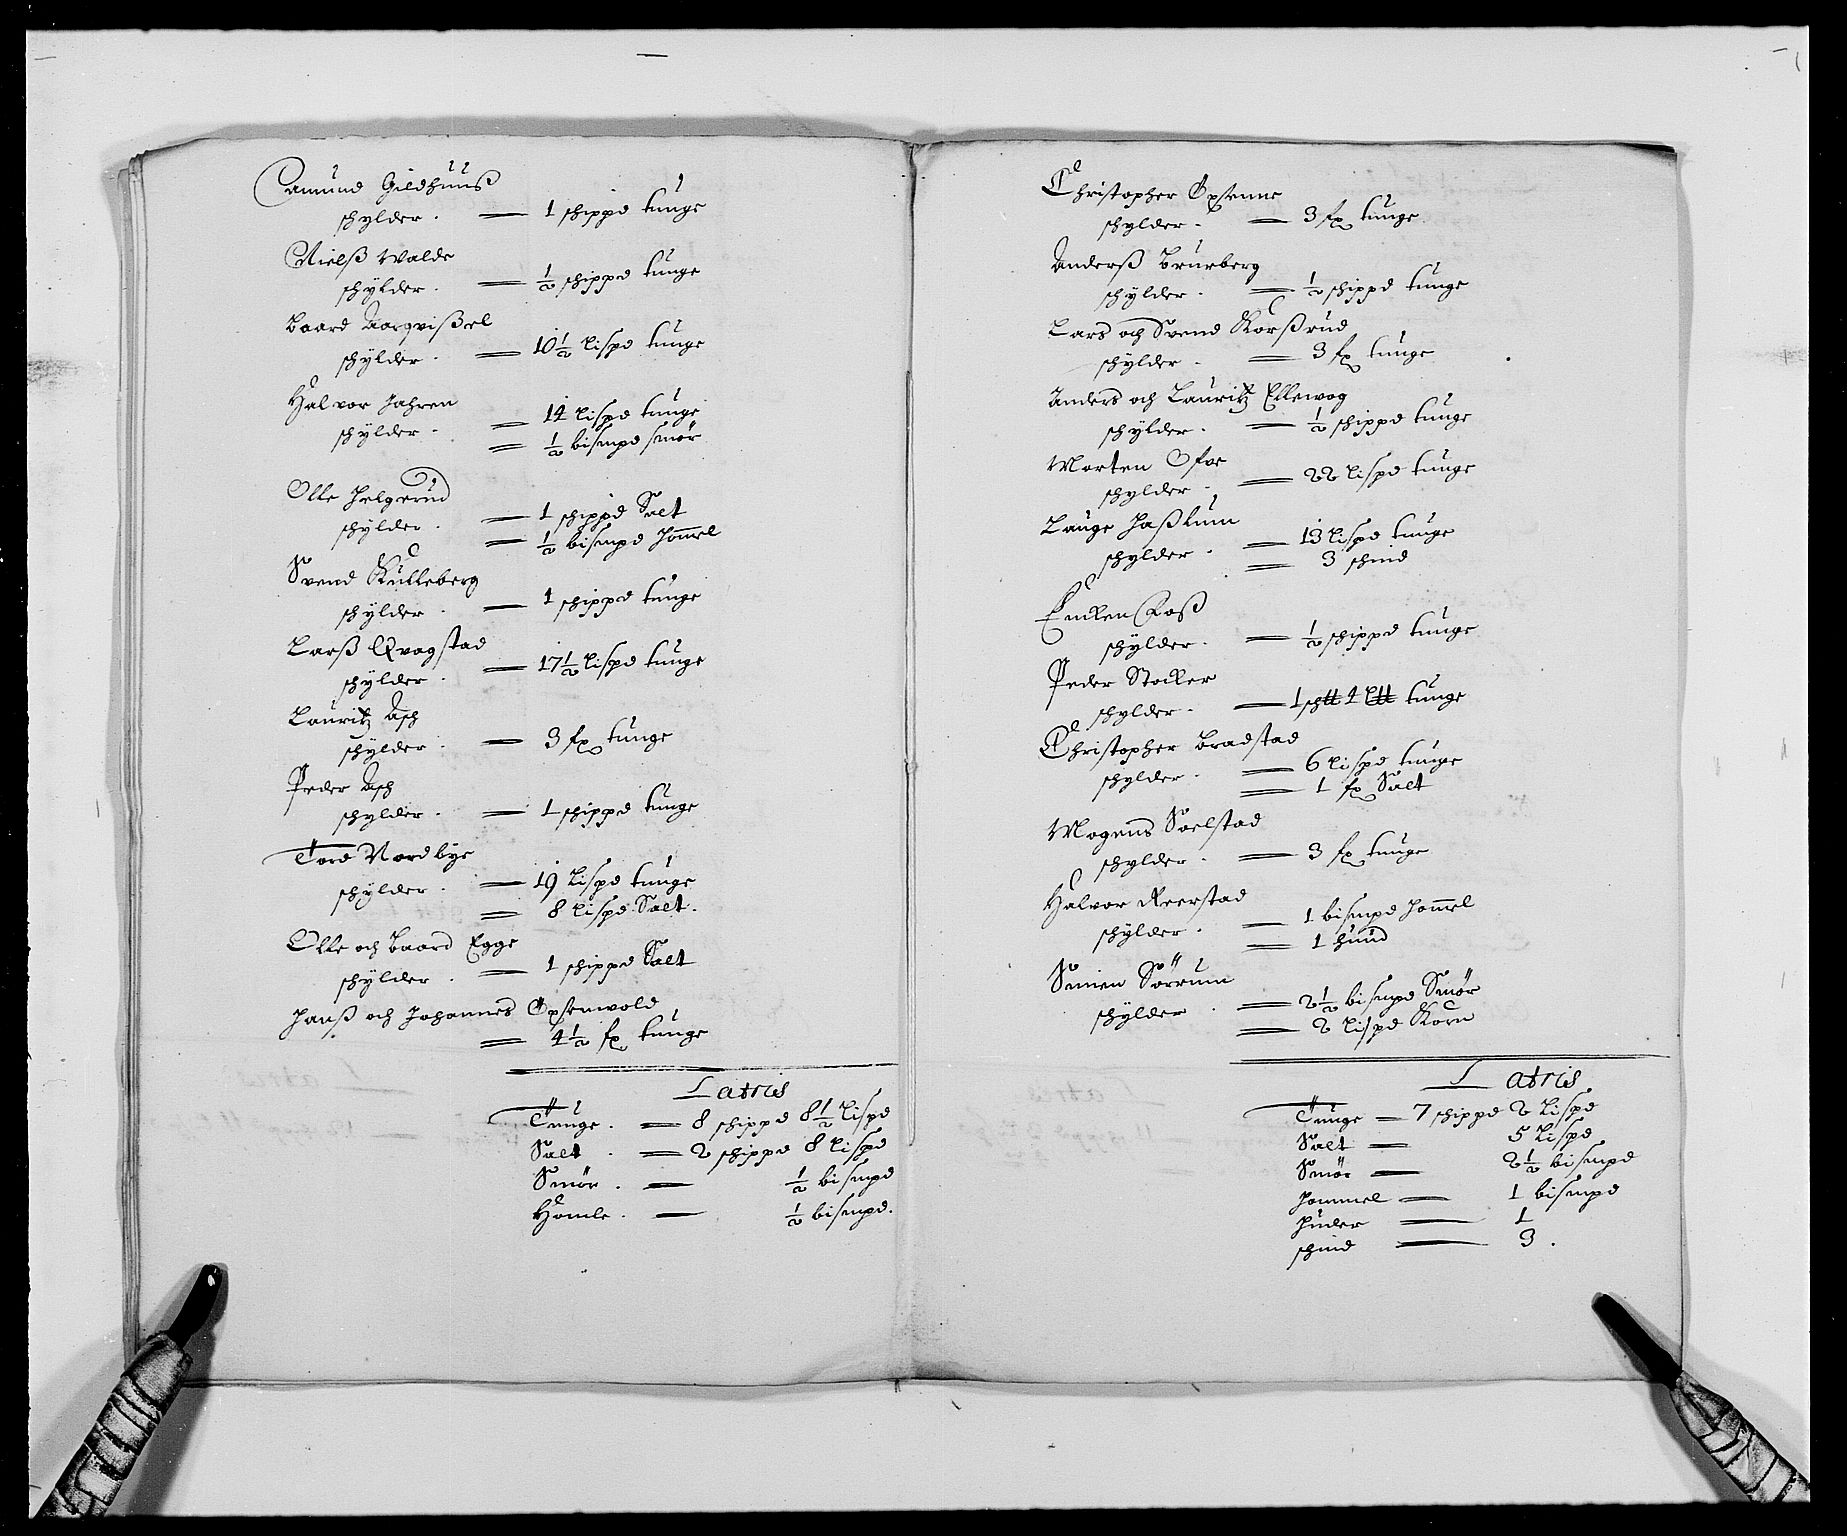 Amund Gildhuus
schylder. — 1 schippd tunge
Nielß Walde
schylder. — ½ schippd tunge
Baard
schylder. — 10½ lispd tunge
Halvor Jahren
schylder. — 14 lispd tunge
— ½ bismpd smør
Olle Helgerud
schylder. — 1 schippd Salt
— ½ bismpd Hom̄el
Svend Kulleberg
schylder. — 1 schippd tunge
Larß Qvagstad
schylder. — 17½ lispd tunge
Lauritz Asch
schylder. — 3 fx tunge
Peder Asch
schylder. — 1 schippd tunge
Tord Nordbye
schylder. — 19 lispd tunge
— 8 lispd Salt.
Olle och Baard Egge
schylder. — 1 schippd Salt
Hanß och Johannes Øxenvold
— 4½ fx tunge
Latris
Tunge. — 8 schippd 8½ lispd
Salt. — 2 schippd 8 lispd
Smör. — ½ bismpd
Homle. — ½ bismpd.
Christopher Øxenne
schylder. — 3 fx tunge
Anderß Brurberg
schylder. — ½ schippd tunge
Lars och Svend Korßrud
schylder. — 3 fx tunge
Anders och Lauritz Ellewog
schylder. — ½ schippd tunge
Morten Ofve
schylder. — 22 lispd tunge
Lauge Haßlum
schylder. — 13 lispd tunge
— 3 schind
Enken Foß
schylder. — ½ schippd tunge
Peder Stocker
schylder. — 1 sch℔ 4 l℔ tunge
Christopher Bradstad
schylder. — 6 lispd tunge
— 1 fx Salt
Mogens Saelstad
schylder. — 3 fx tunge
Halvor Reerstad
schylder. — 1 bismpd Hom̄el
— 1 huud
Simen Sörrum
schylder. — 2½ bismpd Smör
— 2 lispd Korn
Latris
Tunge — 7 schippd 2 lispd
Salt — 5 lispd
Smör — 2½ bismpd
Hommel — 1 bismpd
Huder — 1
schind — 3.